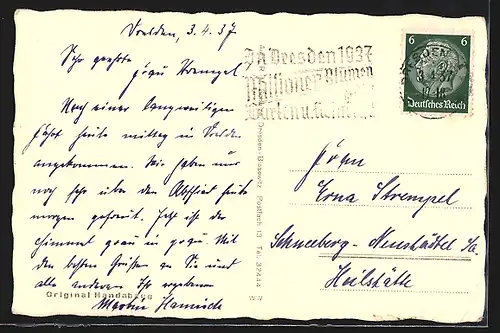 Dresden, 3.4.37
Sehr geehrte
Frau Strempel
Nach einer langweiligen
Fahrt heute mittag in Dresden
angekommen. Wir haben uns
noch sehr über den Abschied heute
morgen gefreut. Jetzt ist der
Himmel grau in grau. Mit
den besten Grüßen an Sie und
alle anderen Ihr ergebener
Original Handabzug
Martin
In Dresden 1937
Millionen Blumen
6 6
DRESDEN
3.4.37
Deutsches Reich
Dresden-Blasewitz Postfach 13 Fab. 32444
Frau
Erna Strempel
Schneeberg-Neustädtel i/Sa.
Heilstätte